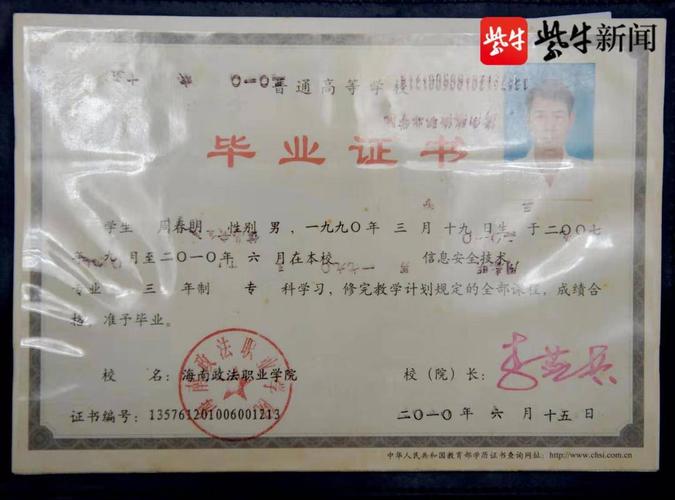 紫牛 紫牛新闻
普通高等学校
毕业证书
学生 周春明 性别 男，一九九〇年 三 月 十九 日生 于二〇〇七
年 九 月至二〇一〇年 六 月在本校 信息安全技术
专业 三 年制 专 科学习，修完教学计划规定的全部课程，成绩合
格，准予毕业。
海南政法职业学院
校 名：海南政法职业学院 校（院）长：
证书编号：135761201006001213 二〇一〇年 六 月 十五 日
中华人民共和国教育部学历证书查询网址：http://www.chsi.com.cn